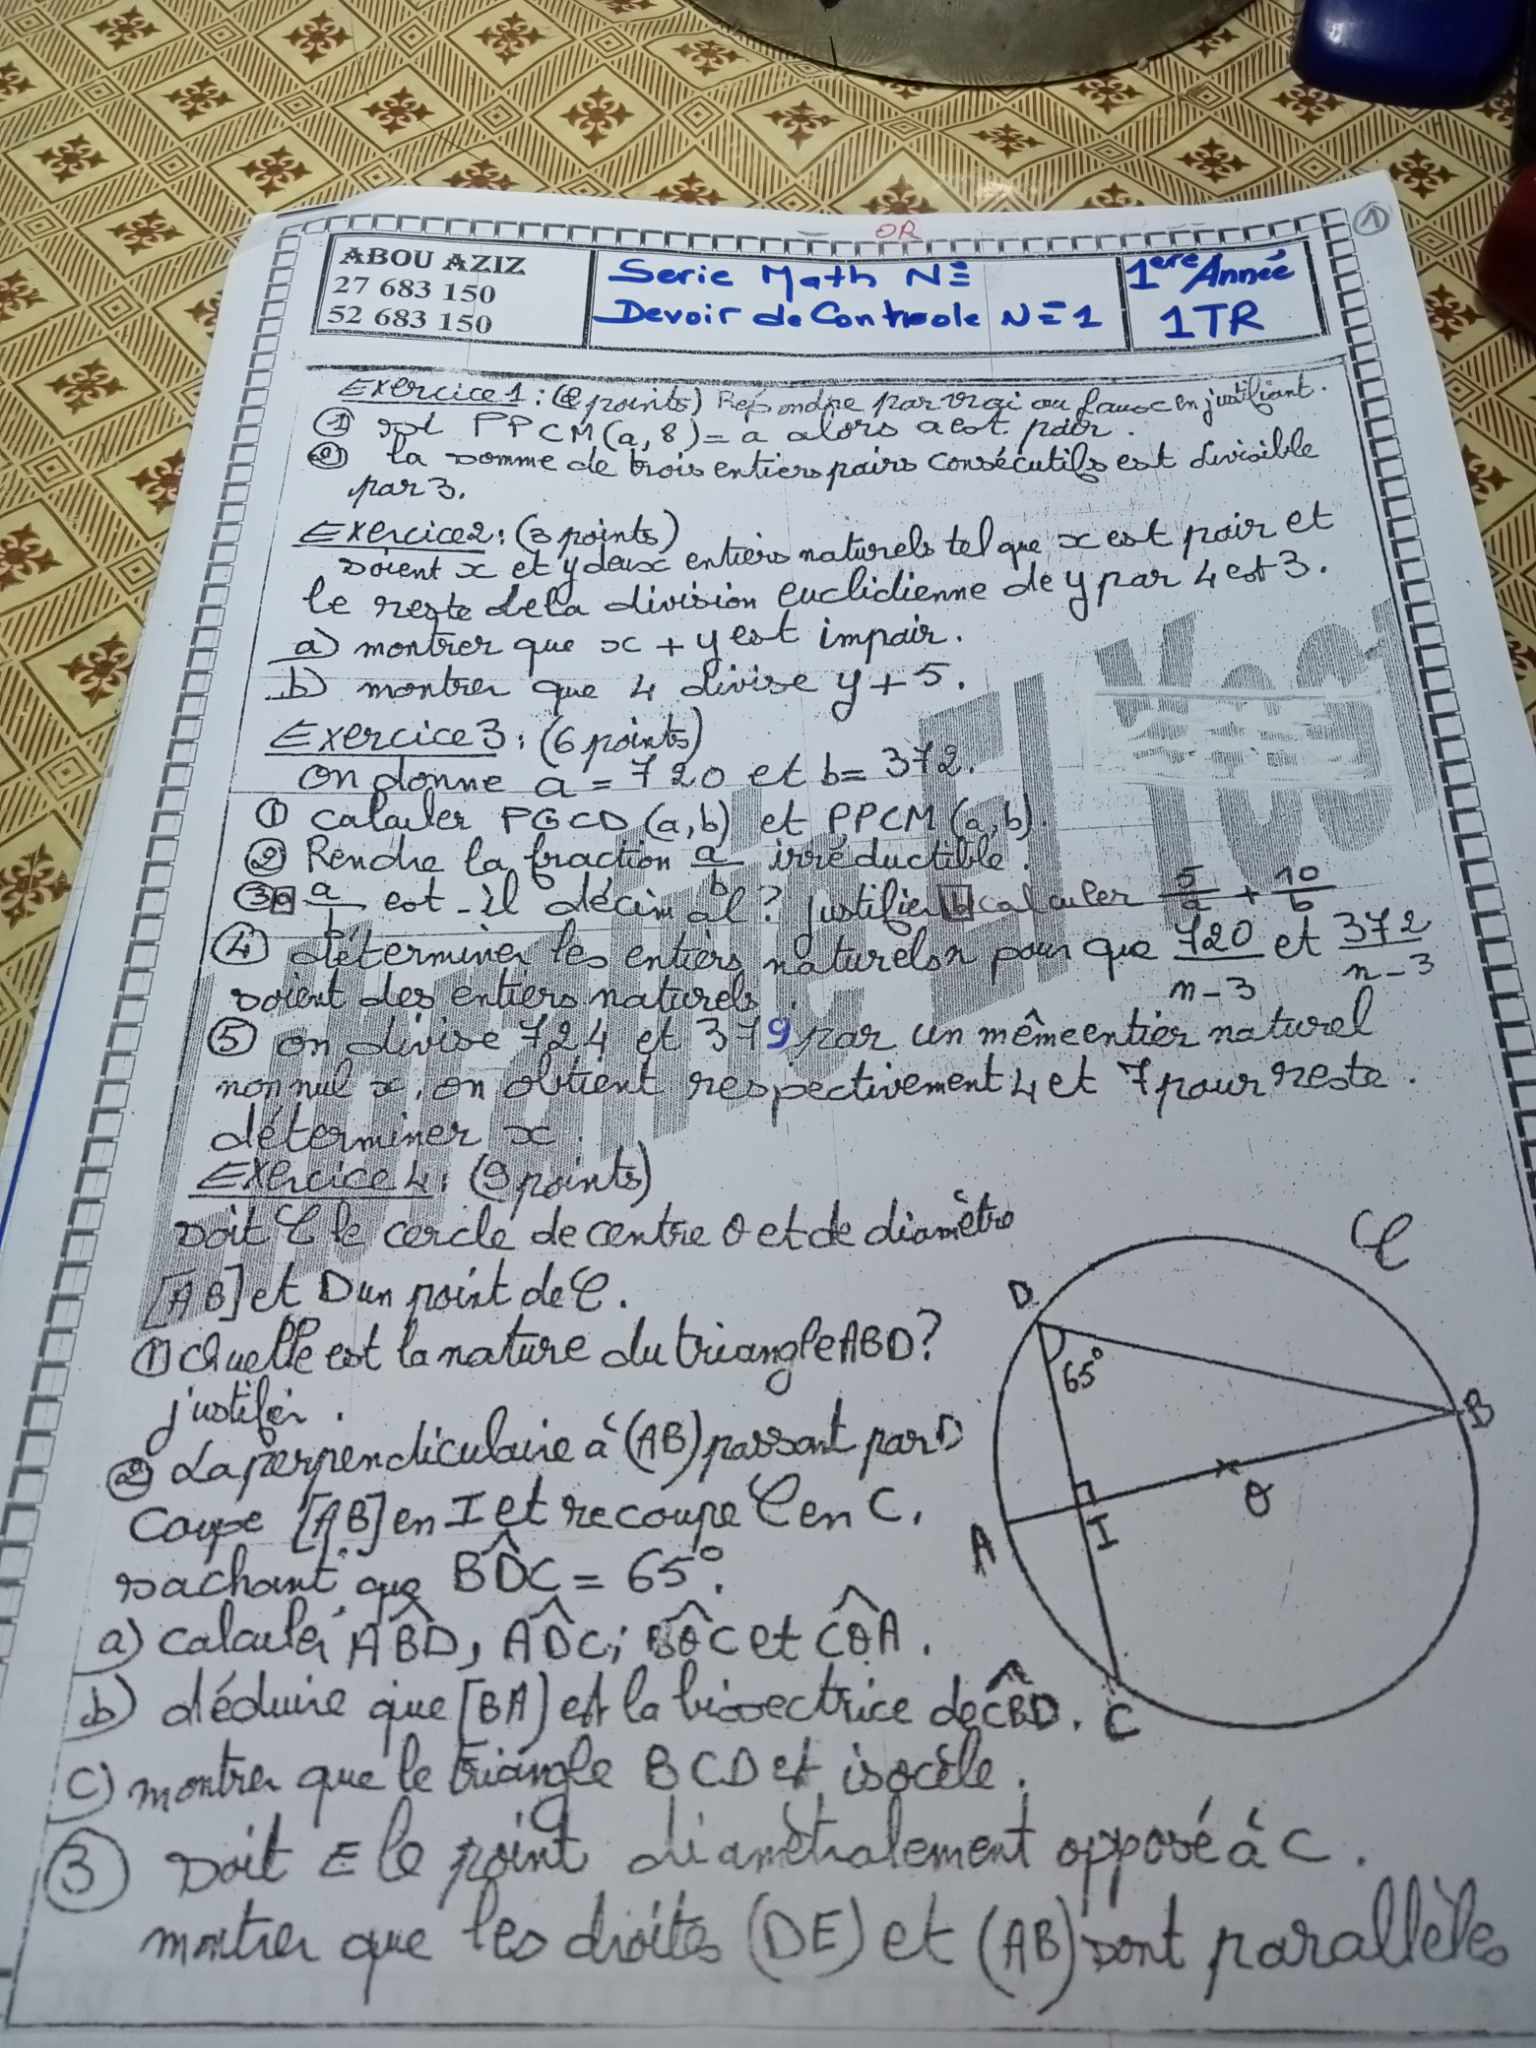 ①
OR
ABOU AZIZ
27 683 150
52 683 150
Serie Math N=
Devoir de Controle N=1
1ère Année
1TR
Exercice 1 : (2 points) Répondre par vrai ou faux en justifiant.
① si PPCM(a,8)=a alors a est pair.
② la somme de trois entiers pairs consécutifs est divisible
par 3.
Exercice 2 : (3 points)
soient x et y deux entiers naturels tel que x est pair et
le reste de la division euclidienne de y par 4 est 3.
a) montrer que x + y est impair.
b) montrer que 4 divise y + 5.
Exercice 3 : (6 points)
on donne a = 720 et b = 372.
① calculer PGCD (a,b) et PPCM (a,b).
② Rendre la fraction a/b irréductible.
③ a a/b est-il décimal? justifier b calculer 5/a + 10/b
④ déterminer les entiers naturels n pour que 720/n-3 et 372/n-3
soient des entiers naturels.
⑤ on divise 724 et 379 par un même entier naturel
non nul x, on obtient respectivement 4 et 7 pour reste.
déterminer x.
Exercice 4 : (9 points)
soit C le cercle de centre O et de diamètre
[AB] et D un point de C.
① Quelle est la nature du triangle ABD?
justifier.
② La perpendiculaire à (AB) passant par D
coupe [AB] en I et recoupe C en C.
sachant que BDC = 65°.
a) calculer ABD, ADC; BOC et COA.
b) déduire que [BA] est la bissectrice de CBD.
c) montrer que le triangle BCD et isocèle.
③ soit E le point diamétralement opposé à C.
montrer que les droites (DE) et (AB) sont parallèles
C
D
65°
B
O
A
I
C